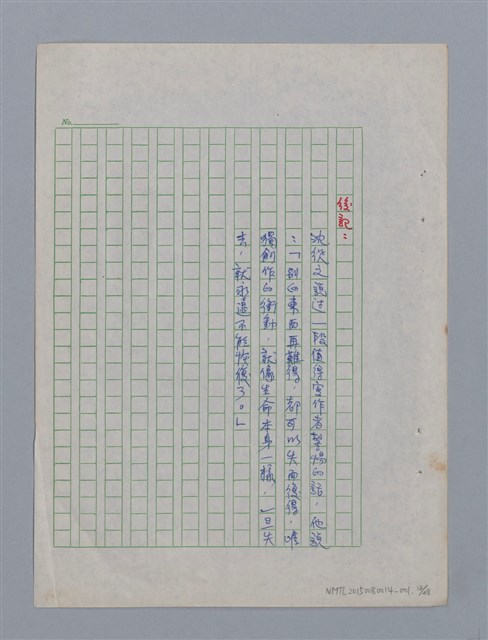 No.
後記：
沈從文說过一段值得寫作者警惕的話，他說
：「別的東西再難得，都可以失而復得，唯
獨創作的衝動，就像生命本身一樣，一旦失
去，就永遠不能恢復了。」
NMTL20150080014-001